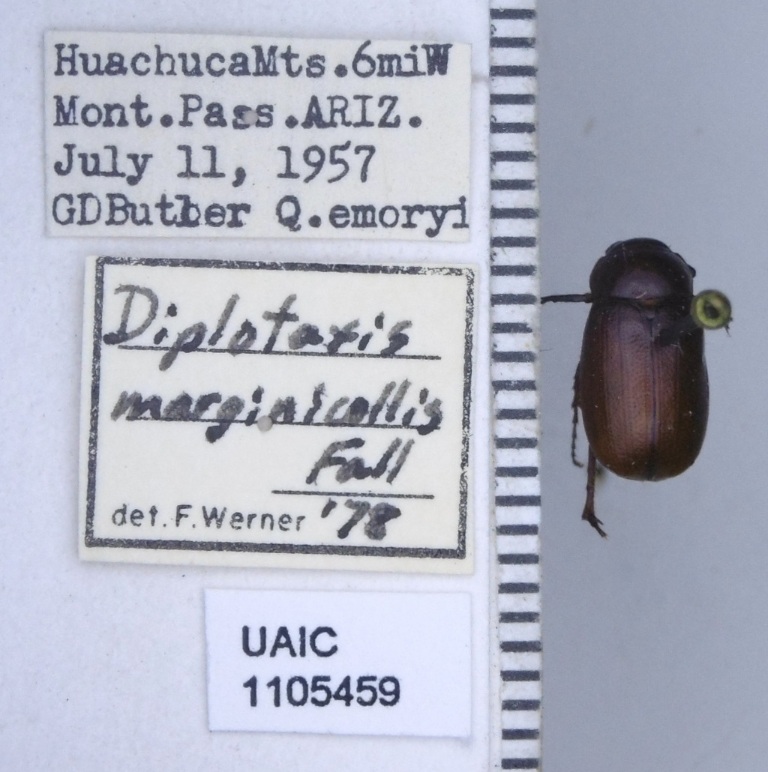 HuachucaMts.6miW
Mont.Pass.ARIZ.
July 11, 1957
GDButler Q.emoryi
Diplotaxis
marginicollis
Fall
det. F. Werner '78
UAIC
1105459